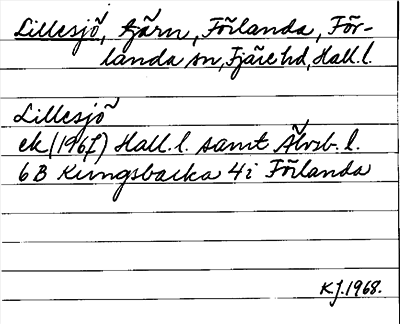 Lillesjö, tjärn, Förlanda, För-
landa sn, Fjäre hd, Hall.l.
Lillesjö
ek (1967) Hall.l. samt Älvsb.l.
6B Kungsbacka 4i Förlanda
K.J.1968.